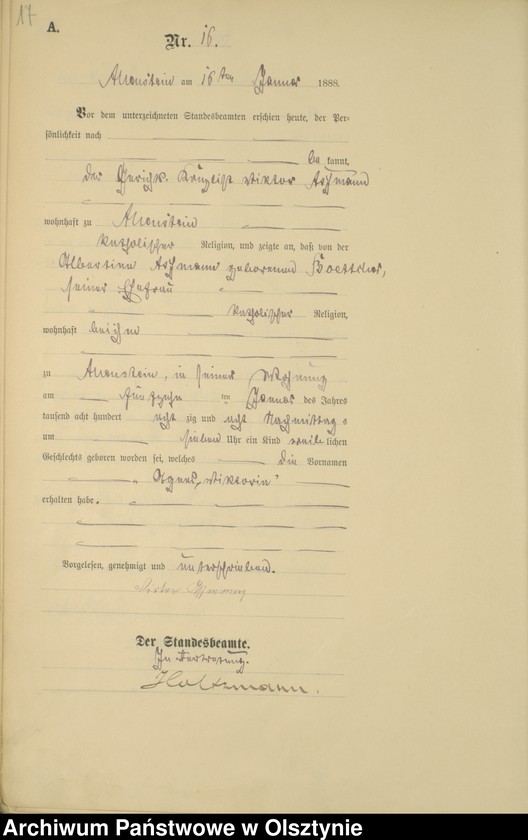 17
A.
Nr. 16.
Allenstein am 16ten Januar 1888.
Vor dem unterzeichneten Standesbeamten erschien heute, der Per-
sönlichkeit nach
be kannt,
der Gerichts Kanzlist Viktor
wohnhaft zu Allenstein
katholischer Religion, und zeigte an, daß von der
Albertine geborenen Boettcher,
seiner Ehefrau
katholischer Religion,
wohnhaft bei ihm
zu Allenstein, in seiner Wohnung
am fünfzehn ten Januar des Jahres
tausend acht hundert acht zig und acht Nachmittags
um sieben Uhr ein Kind weib lichen
Geschlechts geboren worden sei, welches die Vornamen
„Agnes, Viktoria“
erhalten habe.
Vorgelesen, genehmigt und unterschrieben.
Der Standesbeamte.
In Vertretung.
Holtzmann.
Archiwum Państwowe w Olsztynie